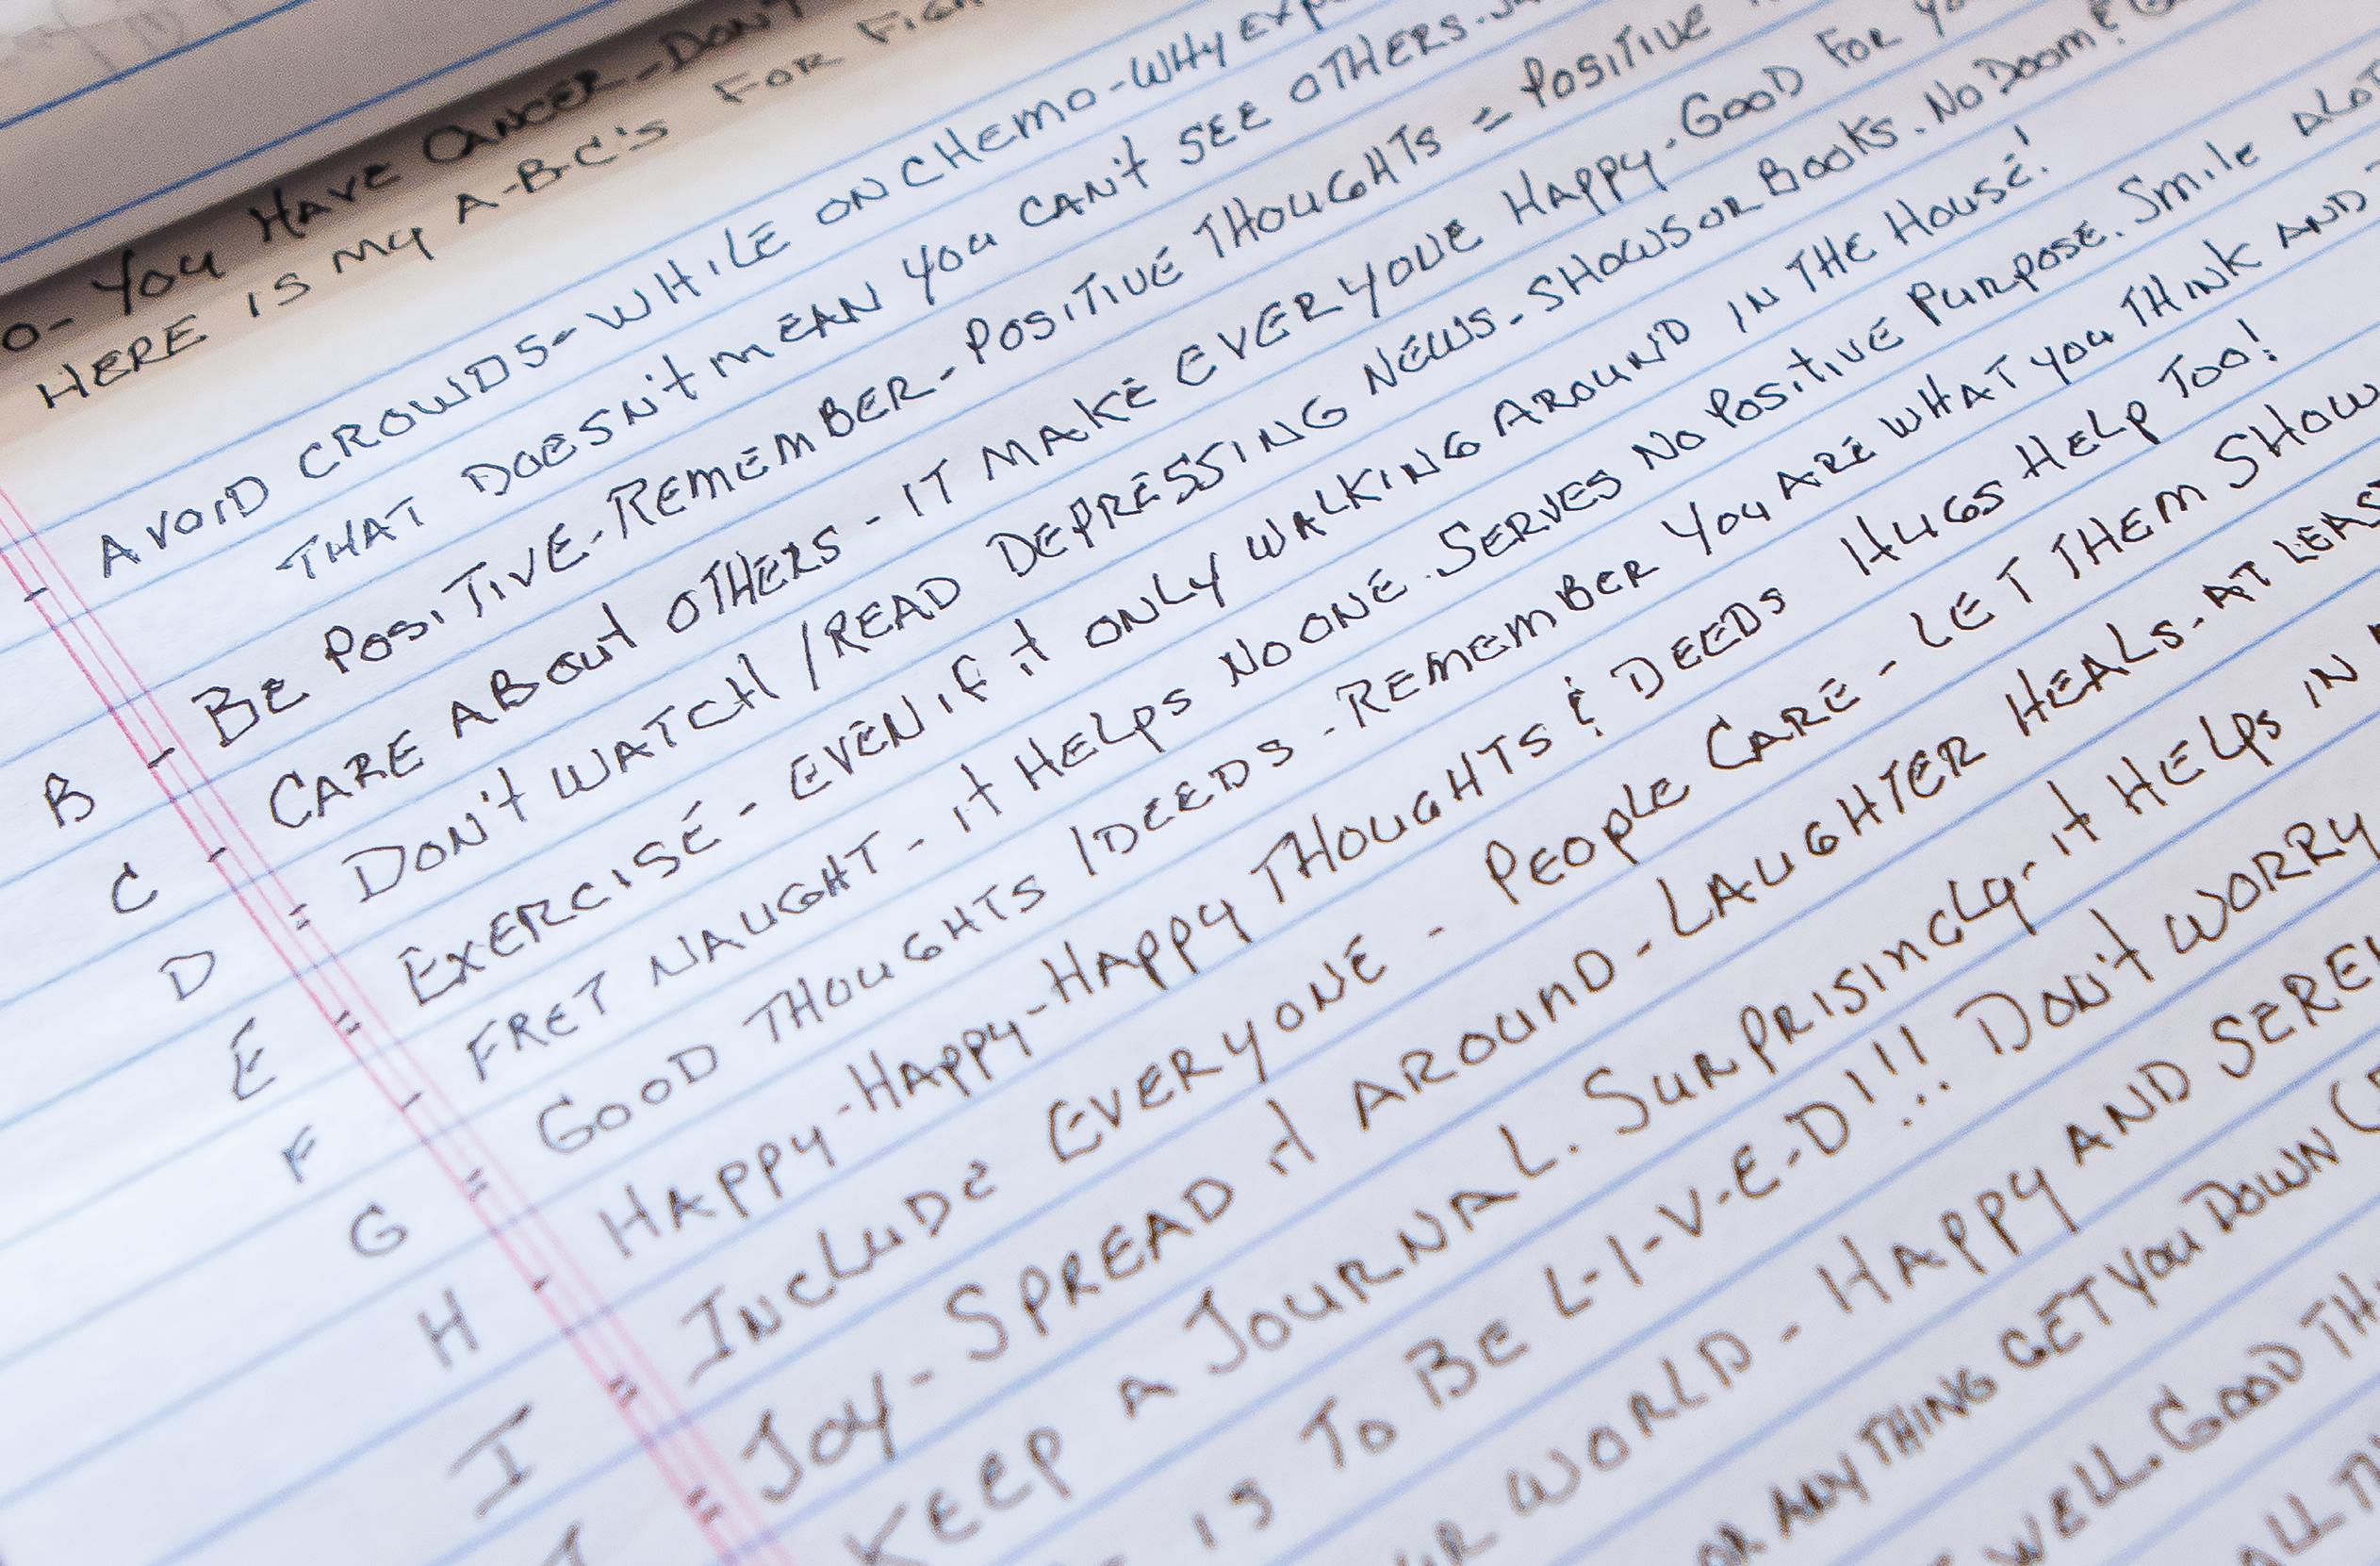 O- YOU HAVE CANCER - DON'T
HERE IS MY A-B-C'S FOR
- AVOID CROWDS - WHILE ON CHEMO - WHY
THAT DOESN'T MEAN YOU CAN'T SEE OTHERS.
B - BE POSITIVE - REMEMBER - POSITIVE THOUGHTS = POSITIVE
C - CARE ABOUT OTHERS - IT MAKE EVERYONE HAPPY. GOOD FOR
D = DON'T WATCH / READ DEPRESSING NEWS - SHOWS OR BOOKS. NO DOOM &
E = EXERCISE - EVEN IF it ONLY WALKING AROUND IN THE HOUSE!
F - FRET NAUGHT - it HELPS NO ONE. SERVES NO POSITIVE PURPOSE. SMILE ALOT
G = GOOD THOUGHTS / DEEDS - REMEMBER YOU ARE WHAT YOU THINK AND
H - HAPPY - HAPPY - HAPPY THOUGHTS & DEEDS HUGS HELP TOO!
I = INCLUDE EVERYONE - PEOPLE CARE - LET THEM SHOW
= JOY - SPREAD it AROUND - LAUGHTER HEALS - AT LEAST
KEEP A JOURNAL. SURPRISINGLY - it HELPS IN
IS TO BE L-I-V-E-D!!! DON'T WORRY
WORLD - HAPPY AND
OR ANYTHING GET YOU DOWN
WELL. GOOD
ALL